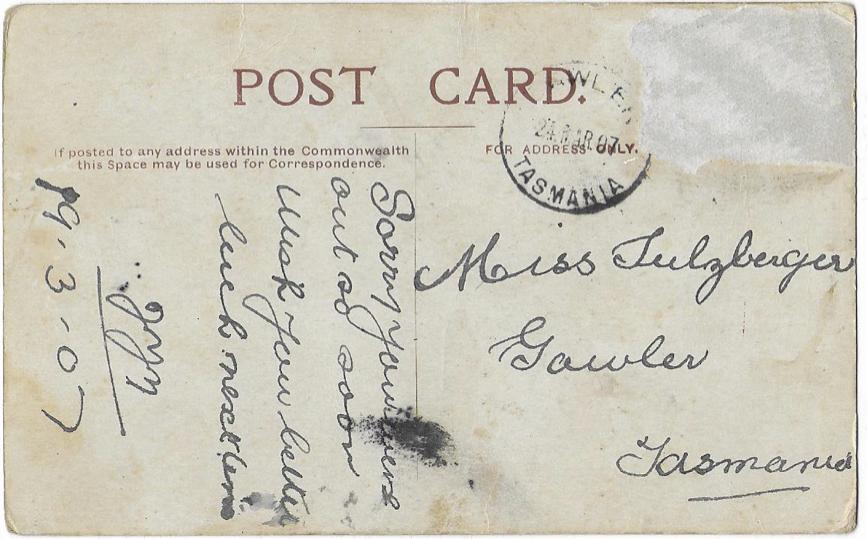 POST CARD.
If posted to any address within the Commonwealth
this Space may be used for Correspondence.
FOR ADDRESS ONLY.
24 MAR 07
TASMANIA
Sorry you were
out so soon
Wish you better
luck next time
19.3.07
Miss Sulzberger
Gawler
Tasmania